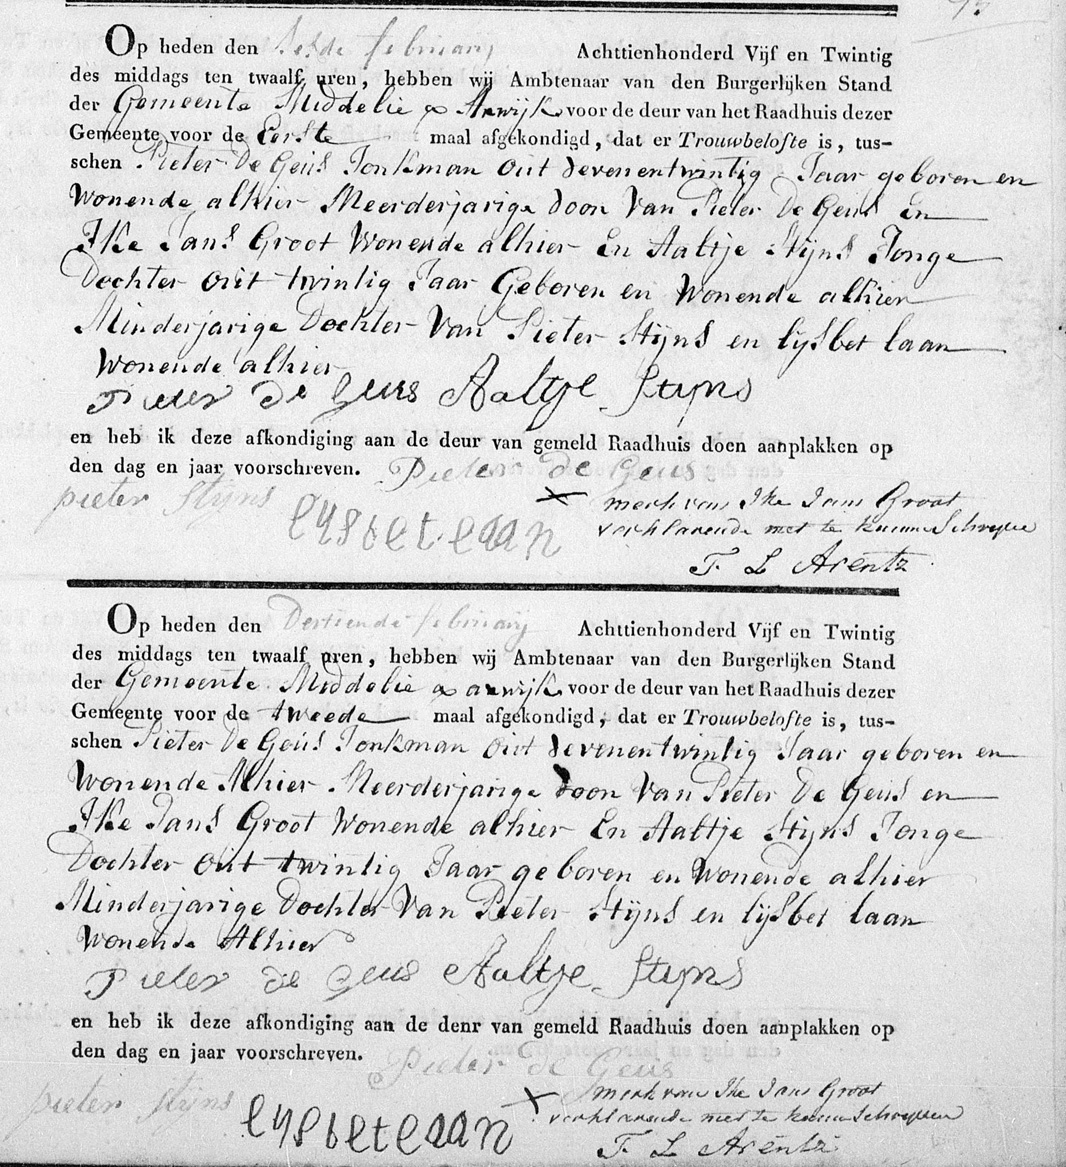 Op heden den Sesde februarij Achttienhonderd Vijf en Twintig
des middags ten twaalf uren, hebben wij Ambtenaar van den Burgerlijken Stand
der Gemeente Middelie & Axwijk voor de deur van het Raadhuis dezer
Gemeente voor de Eerste maal afgekondigd, dat er Trouwbelofte is, tus-
schen Pieter De Geus Jonkman out Sevenentwintig Jaar geboren en
Wonende alhier Meerderjarige Soon Van Pieter De Geus En
Ike Jans Groot Wonende alhier En Aaltje Stijns Jonge
Dochter out twintig Jaar Geboren en Wonende alhier
Minderjarige Dochter Van Pieter Stijns en lijsbet laan
Wonende alhier
Pieter De Geus Aaltje Stijns
en heb ik deze afkondiging aan de deur van gemeld Raadhuis doen aanplakken op
den dag en jaar voorschreven. Pieter de Geus
pieter Stijns
lysbet laan
X merk van Ike Jans Groot
verklarende niet te kunnen Schryven
F L Arentz
Op heden den Dertiende februarij Achttienhonderd Vijf en Twintig
des middags ten twaalf uren, hebben wij Ambtenaar van den Burgerlijken Stand
der Gemeente Middelie & axwijk voor de deur van het Raadhuis dezer
Gemeente voor de tweede maal afgekondigd, dat er Trouwbelofte is, tus-
schen Pieter De Geus Jonkman out Sevenentwintig Jaar geboren en
Wonende Alhier Meerderjarige Soon Van Pieter De Geus en
Ike Jans Groot Wonende alhier En Aaltje Stijns Jonge
Dochter out twintig Jaar geboren en Wonende alhier
Minderjarige Dochter Van Pieter Stijns en lijsbet laan
Wonende Alhier
Pieter de Geus Aaltje Stijns
en heb ik deze afkondiging aan de deur van gemeld Raadhuis doen aanplakken op
den dag en jaar voorschreven. Pieter de Geus
pieter Stijns
lysbet laan
X merk van Ike Jans Groot
verklarende niet te kunne Schryven
F L Arentz